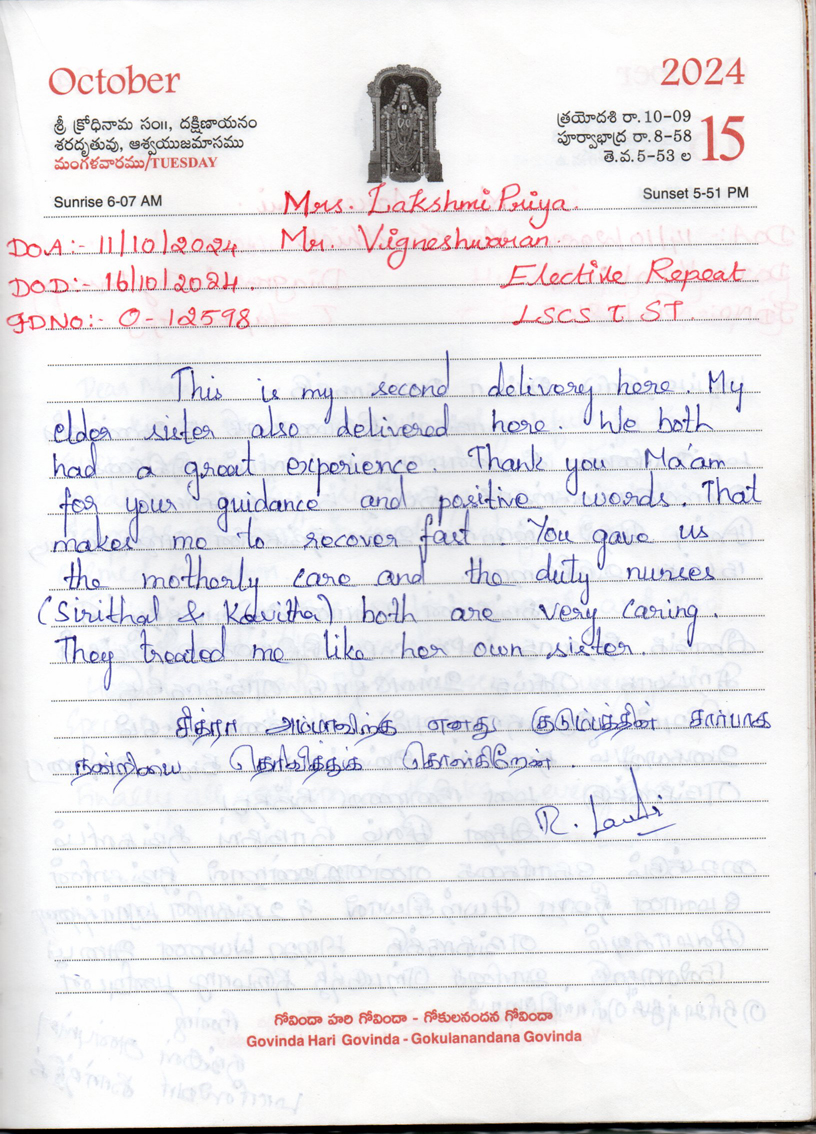 October
2024
శ్రీ క్రోధినామ సం॥, దక్షిణాయనం
శరదృతువు, ఆశ్వయుజమాసము
మంగళవారము/TUESDAY
త్రయోదశి రా.10-09
పూర్వాభాద్ర రా.8-58
తె.వ.5-53 ల
15
Sunrise 6-07 AM
Sunset 5-51 PM
Mrs. LakshmiPriya.
DOA:- 11/10/2024 Mr. Vigneshwaran.
DOD:- 16/10/2024. Elective Repeat
IDNo:- O-12598 LSCS T ST.
This is my second delivery here. My
elder sister also delivered here. We both
had a great experience. Thank you Ma'am
for your guidance and positive words. That
makes me to recover fast. You gave us
the motherly care and the duty nurses
(Sirithal & Kavitha) both are very caring.
They treated me like her own sister.
சித்ரா அம்மாவிற்கு எனது குடும்பத்தின் சார்பாக
நன்றியை தெரிவித்துக் கொள்கிறேன்.
గోవిందా హరి గోవిందా - గోకులనందన గోవిందా
Govinda Hari Govinda - Gokulanandana Govinda